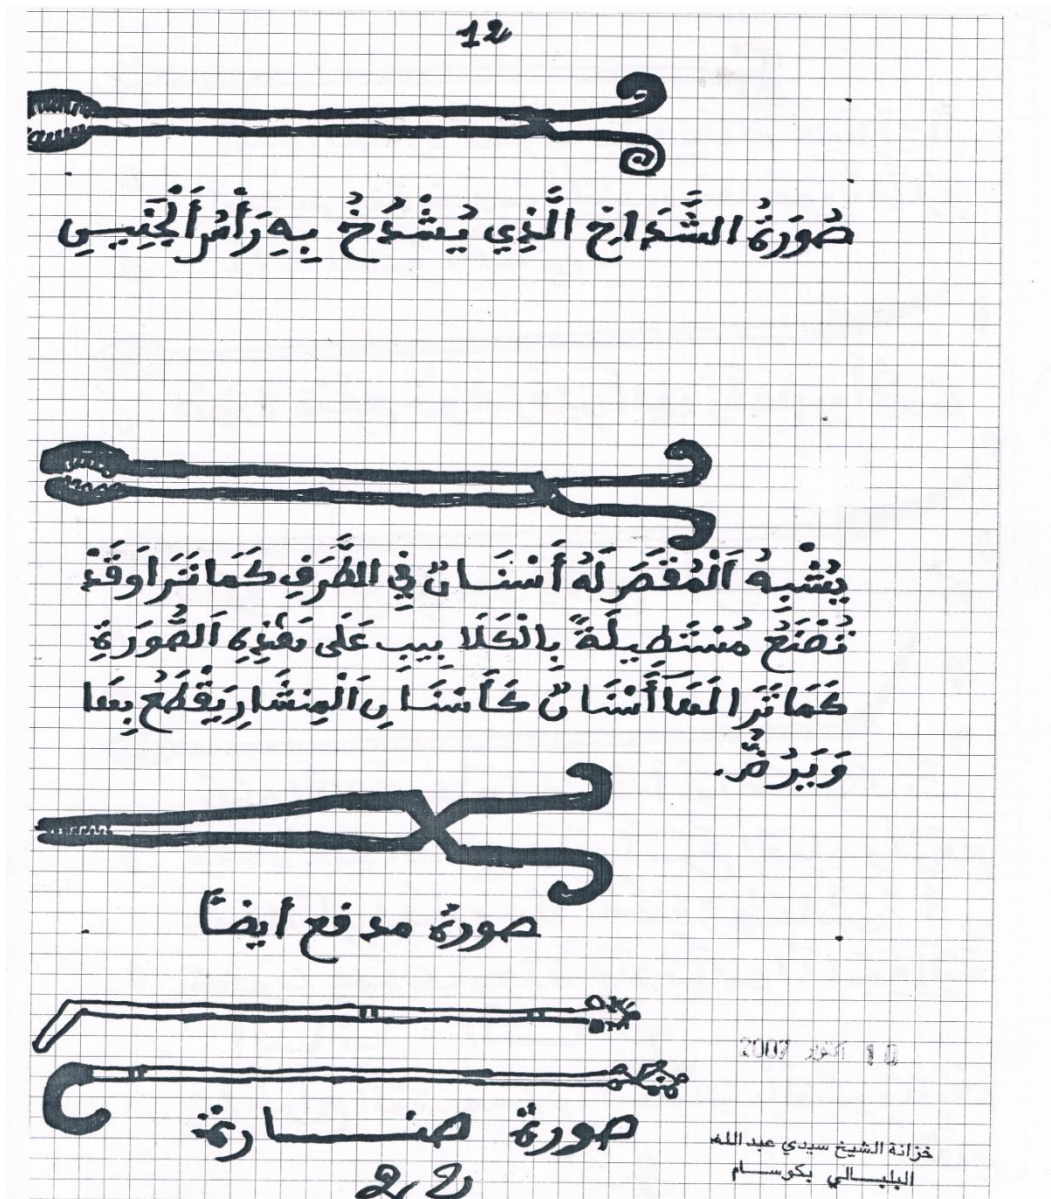 12
صُورَةُ الشَّدَاخِ الَّذِي يُشْدَخُ بِهِ رَأْسُ اَلْجَنِينِ
يُشْبِهُ اَلْمُقَصَ لَهُ أَسْنَانٌ فِي الطَّرَفِ كَمَا تَرَا وَقَدْ
تُصْنَعُ مُسْتَطِيلَةً بِالْكَلَابيبِ عَلَى هَذِهِ اَلصُّورَةِ
كَمَا تَرَا لَهَا أَسْنَانٌ كَأَسْنَانِ اَلْمِنشَارِ يَقْطَعُ بِهَا
وَيَرُضُّ.
صورة مدفع أيضاً
2007
صورة صنـــارة
خزانة الشيخ سيدي عبد الله
البلبـالي بكوســام
22